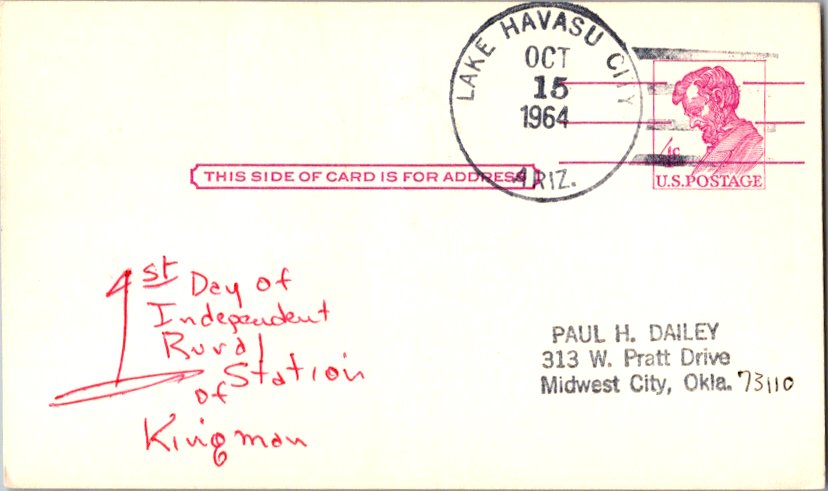 LAKE HAVASU CITY
OCT
15
1964
ARIZ.
4c
U.S.POSTAGE
THIS SIDE OF CARD IS FOR ADDRESS
1st Day of
Independent
Rural
Station
of
Kingman
PAUL H. DAILEY
313 W. Pratt Drive
Midwest City, Okla. 73110